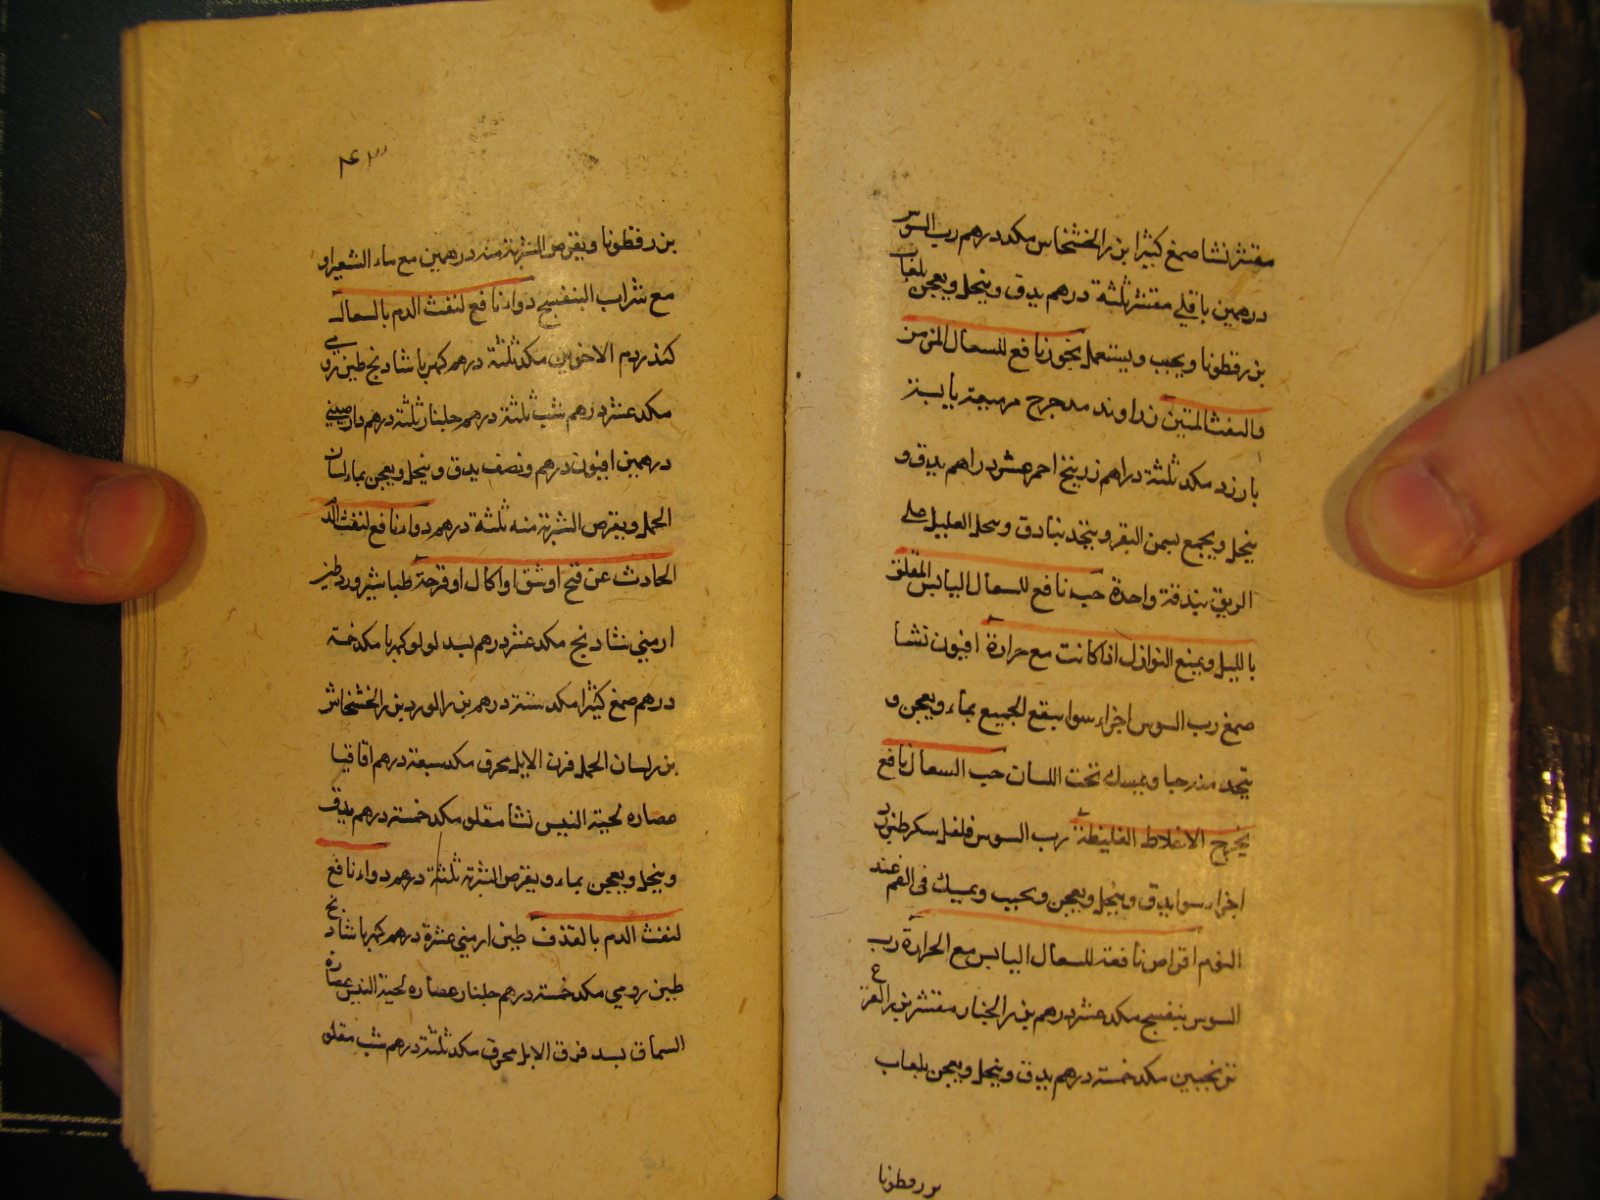 مقشر نشا صمغ كثيرا بزر الخشخاش مكد درهم رب السوس
درهمين باقلي مقشر ثلثة درهم يدق وينخل ويعجن بلعاب
بزرقطونا ويحبب ويستعمل بخور نافع للسعال المزمن
والنفث المنتن زراوند مدحرج ميعة يابسة
بارزد مكد ثلثة دراهم زرنيخ احمر عشر دراهم يدق و
ينخل ويجمع بسمن البقر ويتخذ بنادق العليل على
الريق بندقة واحدة حب نافع للسعال اليابس المقلق
بالليل ويمنع النوازل اذا كانت مع حرارة افيون نشا
صمغ رب السوس اجزاء سوا ينقع الجميع بماء ويعجن و
يتخذ حبا ويمسك تحت اللسان حب السعال نافع
يخرج الاخلاط الغليظة رب السوس فلفل سكر طبرزد
اجزاء سوا يدق وينخل ويعجن ويحبب ويمسك فى الفم عند
النوم اقراص نافعة للسعال اليابس مع الحرارة رب
السوس بنفسج مكد عشر درهم بزر الخيار مقشر بزر القرع
ترنجبين مكد خمسة درهم يدق وينخل ويعجن بلعاب
بزرقطونا
بزرقطونا ويقرص الشربة منه درهمين مع ماء الشعير او
مع شراب البنفسج دواء نافع لنفث الدم بالسعال
كندر دم الاخوين مكد ثلثة درهم كهربا شادنج طين رومي
مكد عشر درهم شب ثلثة درهم جلنار ثلثة درهم دارصيني
درهمين افيون درهم ونصف يدق وينخل ويعجن بماء لسان
الحمل ويقرص الشربة منه ثلثة درهم دواء نافع لنفث الدم
الحادث عن فتح او شق او اكال او قرحة طباشير ورد طين
ارمني شادنج مكد عشر درهم بسد لولو كهربا مكد خمسة
درهم صمغ كثيرا مكد ستة درهم بزر الورد بزر الخشخاش
بزر لسان الحمل قرن الايل محرق مكد سبعة درهم اقاقيا
عصاره لحية التيس نشا مقلو مكد خمسة درهم يدق
وينخل ويعجن بماء ويقرص الشربة ثلثة درهم دواء نافع
لنفث الدم بالقذف طين ارمني عشرة درهم كهربا شادنج
طين رومي مكد خمسة درهم جلنار عصاره لحية التيس عصارة
السماق بسد قرن الايل محرق مكد ثلثة درهم شب مقلو